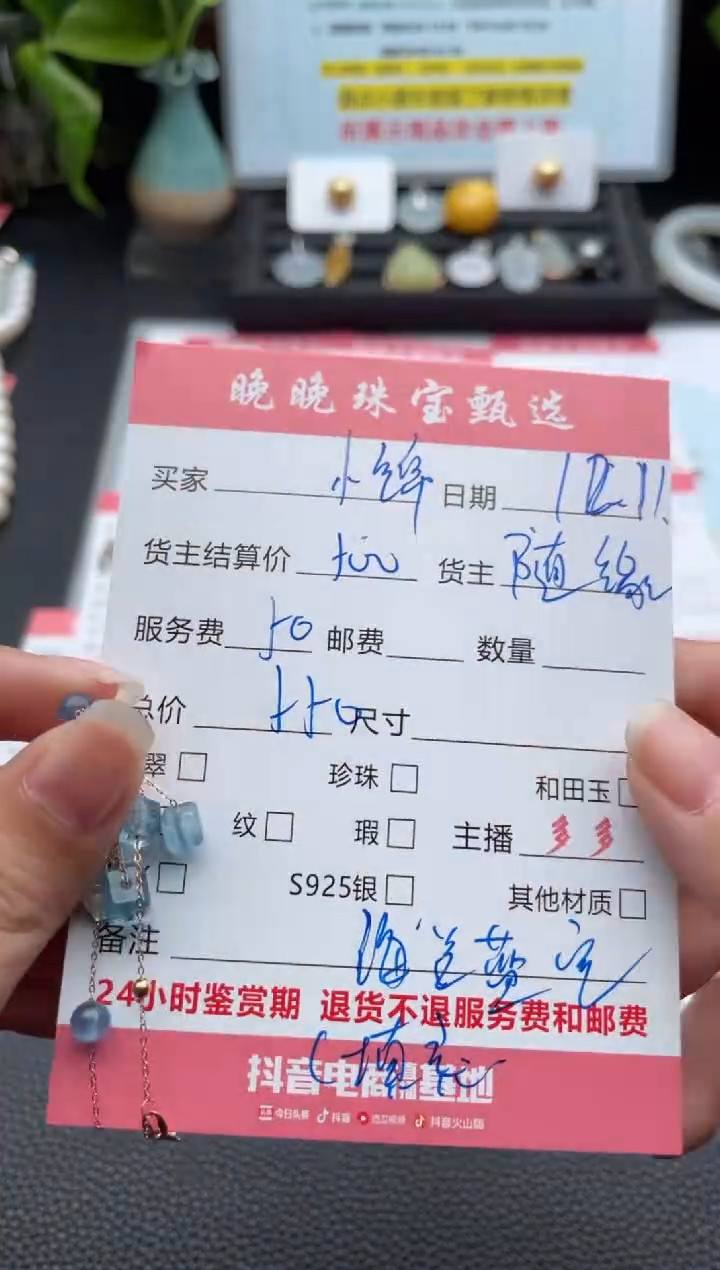 晚晚珠宝甄选
买家 小锦 日期 12.11.
货主结算价 500 货主 随缘
服务费 50 邮费 数量
总价 550 尺寸
翠 珍珠 和田玉
纹 瑕 主播 多多
S925银 其他材质
备注 海蓝宝
24小时鉴赏期 退货不退服务费和邮费
抖音电商直播基地
今日头条 抖音 西瓜视频 抖音火山版